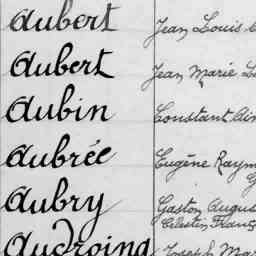 Aubert Jean Louis
Aubert Jean Marie
Aubin Constant
Aubrée Eugène Raym
Aubry Gaston Augus
Célestin Franç
Audroing Joseph Mar